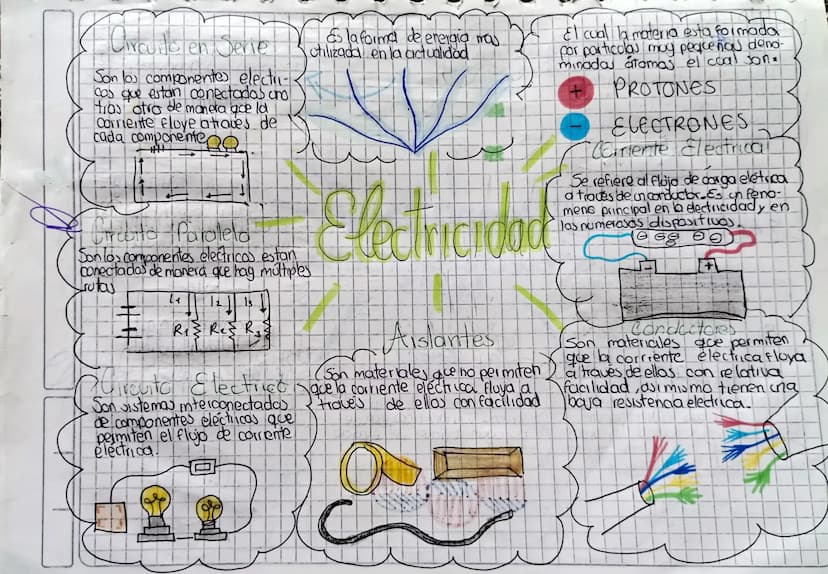 Circuito en Serie
Son los componentes electri-
cos que estan conectados uno
tras otro de manera que la
corriente fluye a traves de
cada componente
Es la forma de energia mas
utilizada en la actualidad
El cual la materia esta formada
por particulas muy pequeñas deno-
minadas átomos el cual son:
+ PROTONES
- ELECTRONES
Corriente Electrica
Se refiere al flujo de carga eletrica
a traves de un conductor. Es un feno-
meno principal en la electricidad y en
los numerosos dispositivos.
- +
Electricidad
Circuito Paralelo
Son los componentes electricos estan
conectados de manera que hay múltiples
rutas
I1 I2 I3
R1 R2 R3
Circuito Electrico
Son sistemas interconectados
de componentes eléctricos que
permiten el flujo de corriente
electrica.
Aislantes
Son materiales que no permiten
que la corriente eléctrica fluya a
través de ellos con facilidad
Conductores
Son materiales que permiten
que la corriente eléctrica fluya
a través de ellos con relativa
facilidad, asi mismo tienen una
baja resistencia electrica.